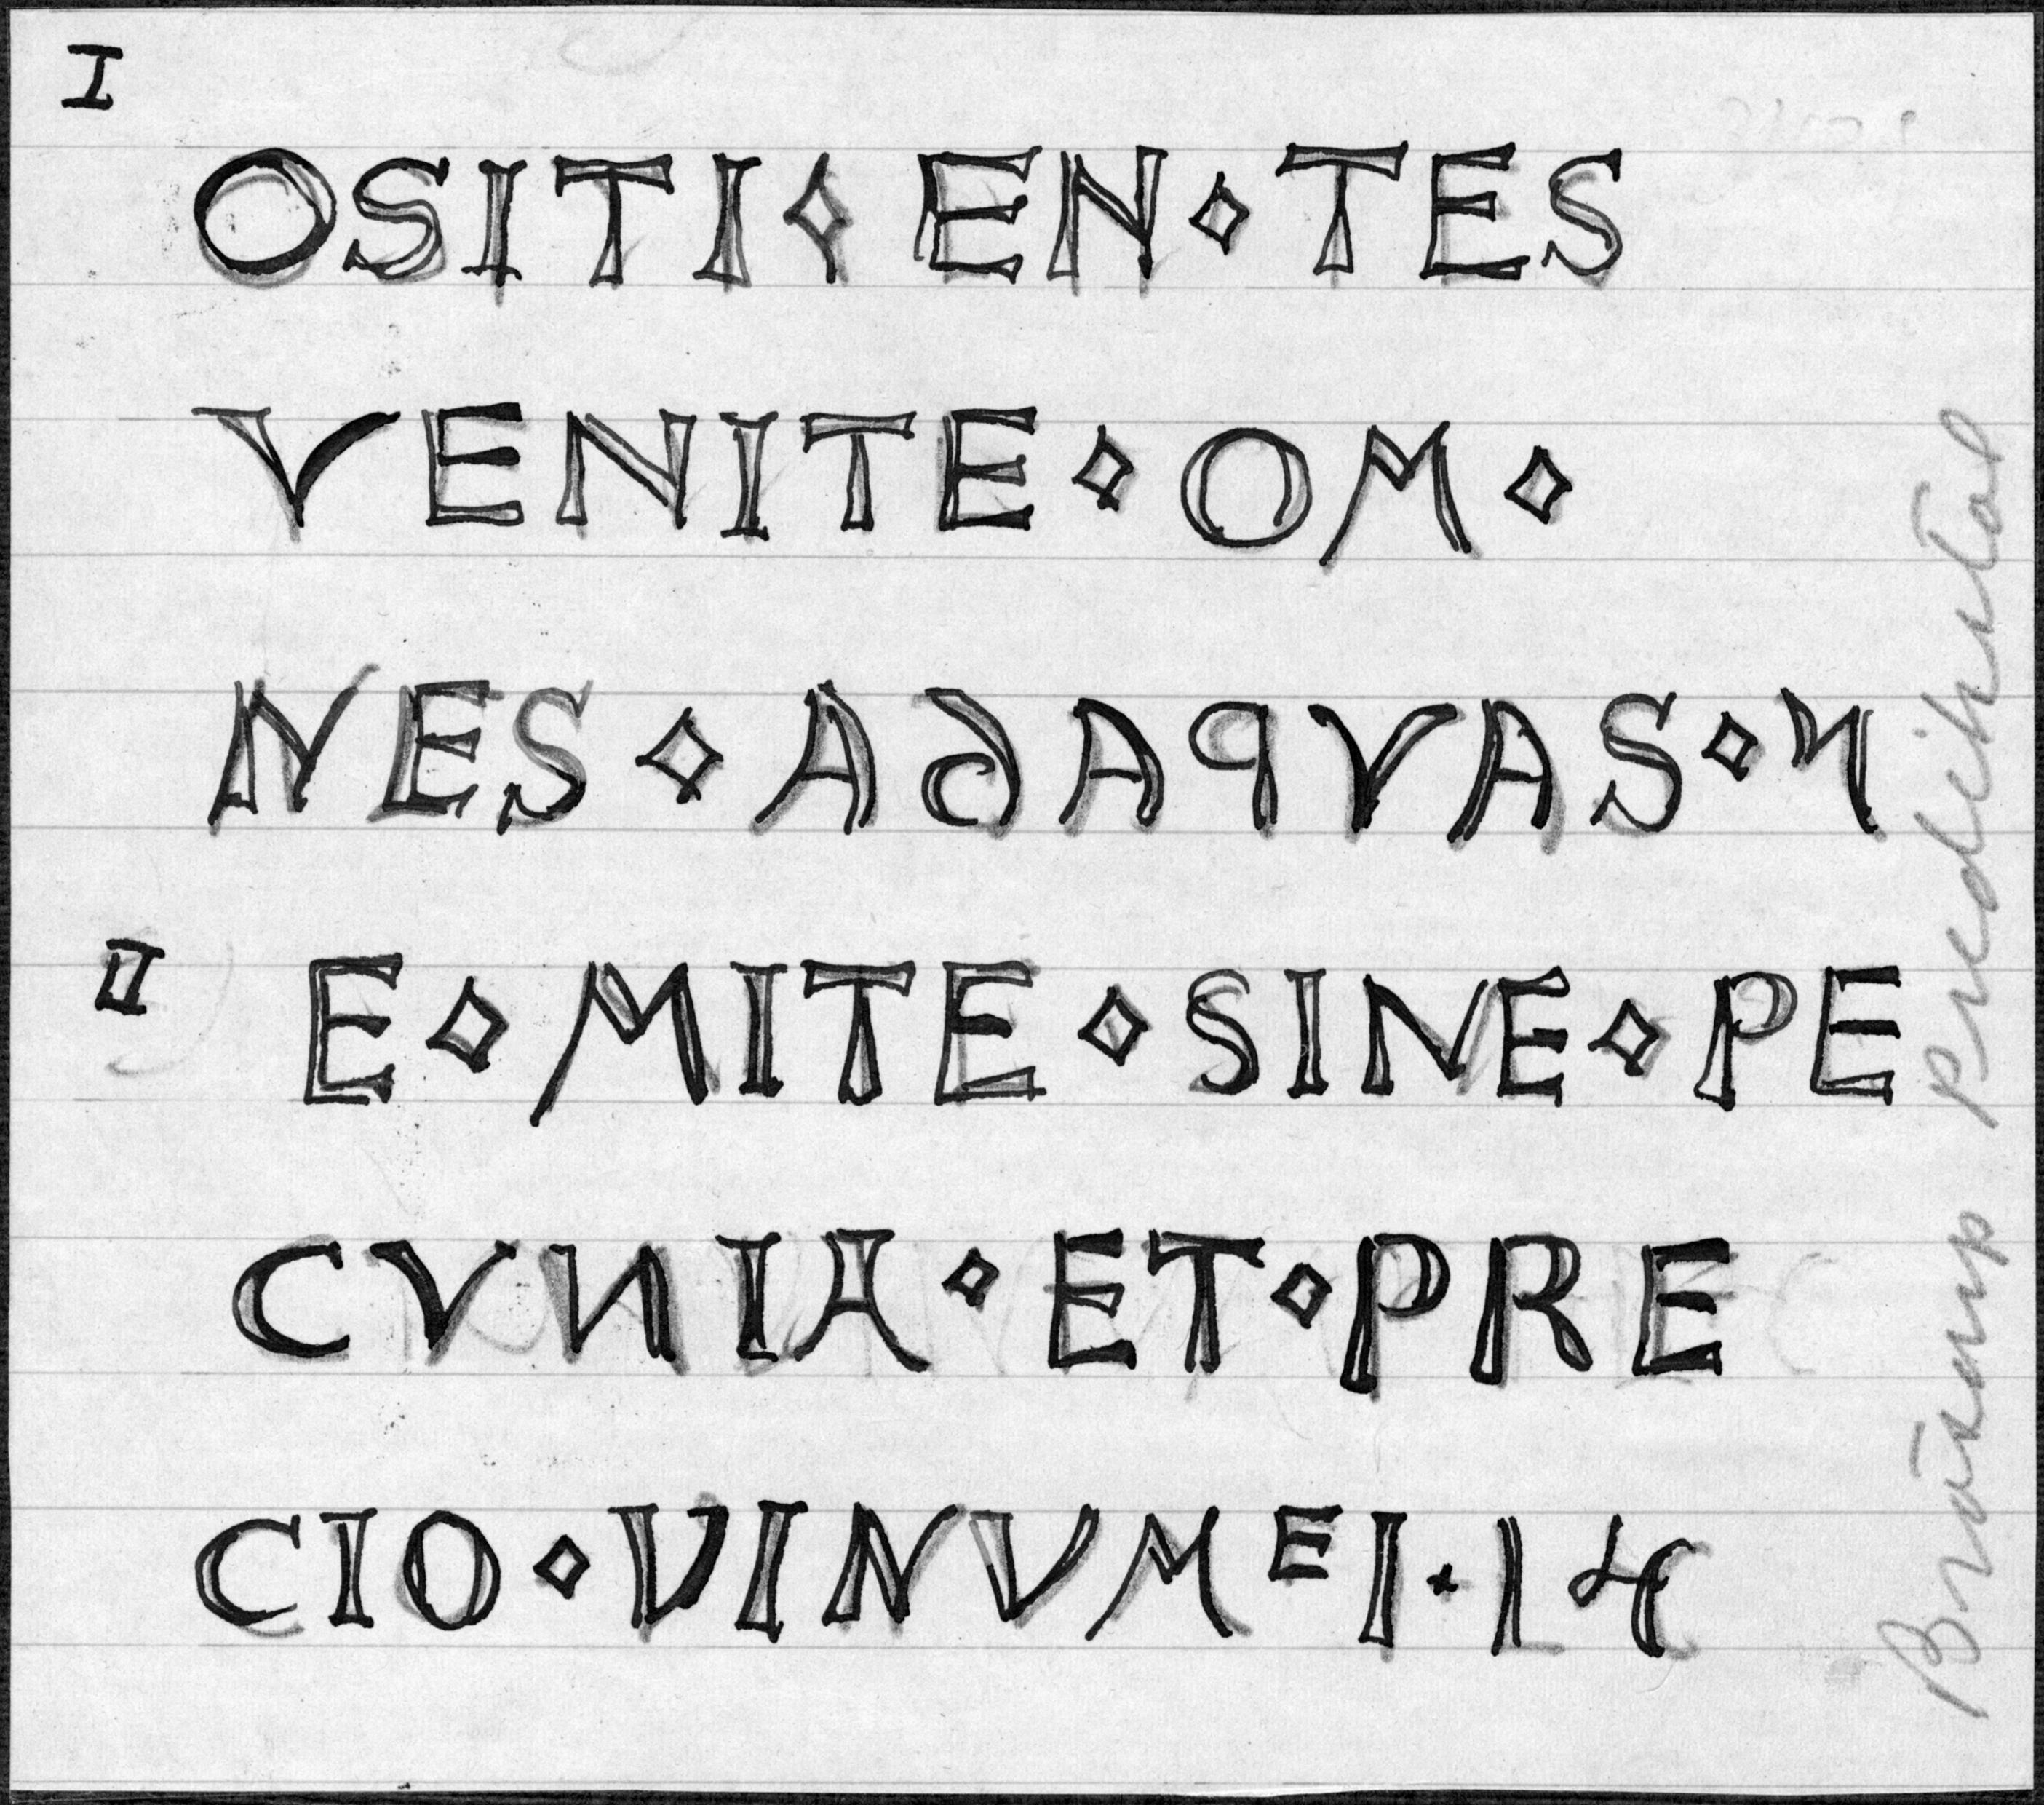 I
OSITI⋄EN⋄TES
VENITE⋄OM⋄
NES⋄ADAQVAS⋄N
II E⋄MITE⋄SINE⋄PE
CVNIA⋄ET⋄PRE
CIO⋄VINVM EI·14